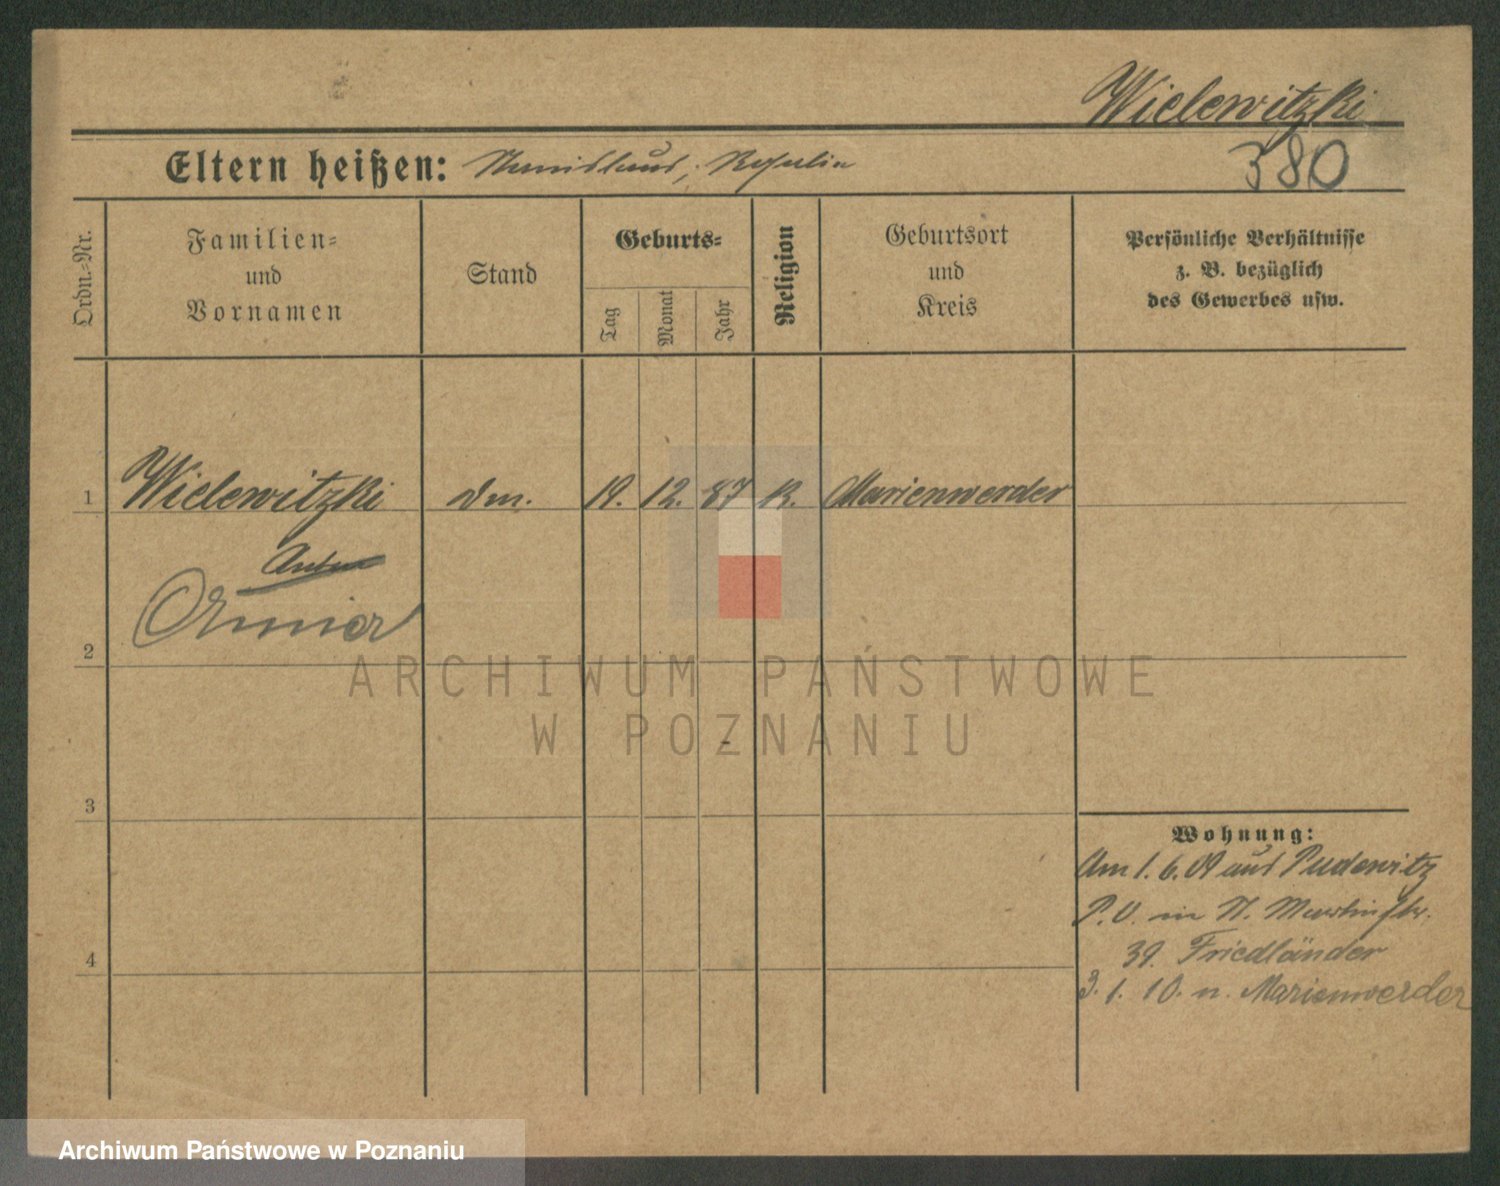 Wielewitzki
Eltern heißen: Stanislaus,
380
Ordn.=Nr.
Familien=
und
Vornamen
Stand
Geburts=
Tag
Monat
Jahr
Religion
Geburtsort
und
Kreis
Persönliche Verhältnisse
z. B. bezüglich
des Gewerbes usw.
1 Wielewitzki 12. 87 K. Marienwerder
Anton
2
ARCHIWUM PAŃSTWOWE
W POZNANIU
3
Wohnung:
Am 1. 6. 09 aus Pudewitz
P. O. in St. Martinstr.
4
39. Friedländer
3. 1. 10. n. Marienwerder
Archiwum Państwowe w Poznaniu